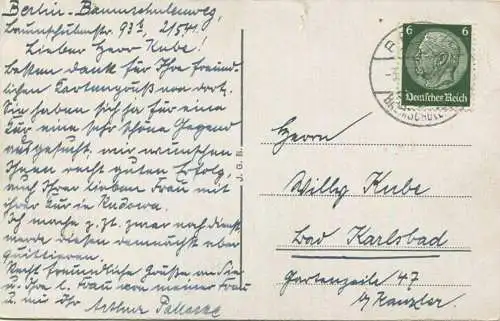 Berlin-Baumschulenweg,
Baumschulenstr. 93 b, 2/5 41.
Lieber Herr Kube!
Besten Dank für Ihre freund-
lichen Kartengruß von dort.
Sie haben sich ja für eine
Kur eine sehr schöne Gegend
ausgesucht. Wir wünschen
Ihnen recht guten Erfolg,
auch Ihrer lieben Frau mit
ihrer Kur in Rudowa.
Ich mache z. Zt. zwar noch Dienst,
werde diesen demnächst aber
quittieren.
Recht freundliche Grüße an Sie
u. Ihre l. Frau von meiner Frau
u. mir Ihr Arthur
J. G. B.
6 6
Deutsches Reich
BERLIN
BAUMSCHULENWEG
Herrn
Willy Kube
Bad Karlsbad
Gartenzeile 47
b/ Kanzler.